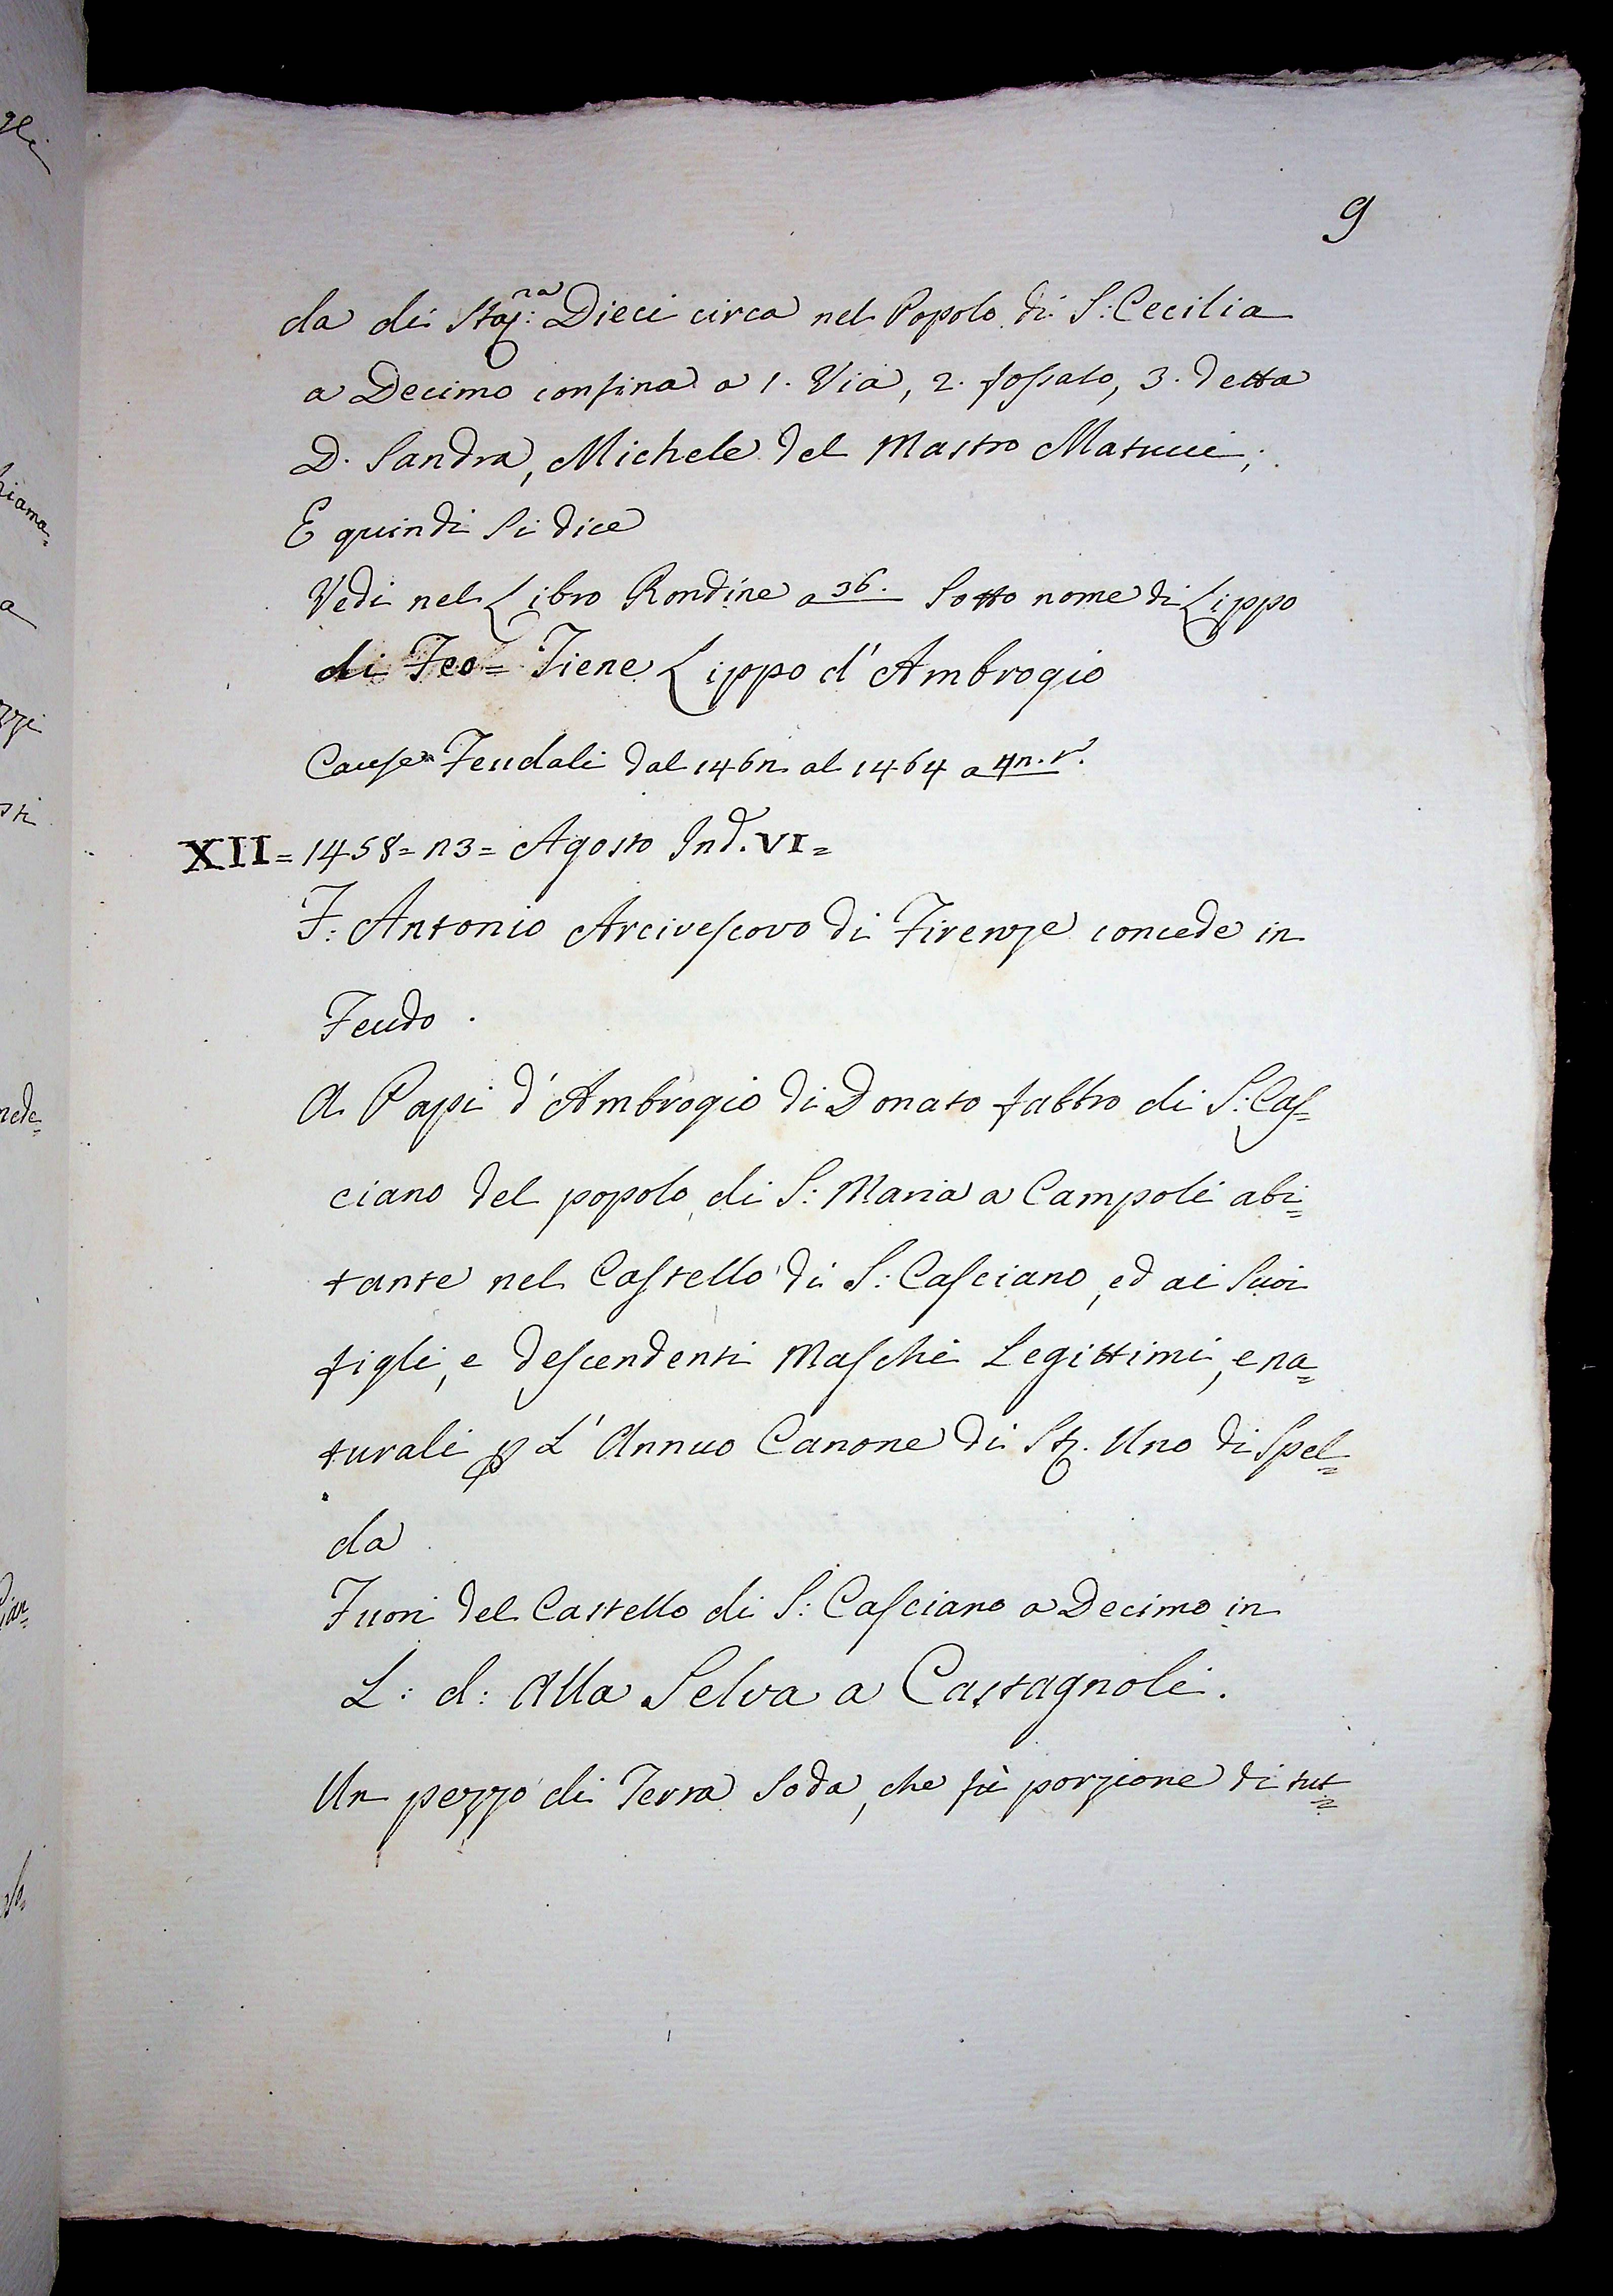 9
da di Staj:ra Dieci circa nel Popolo di S: Cecilia
a Decimo confina a 1. Via, 2. fossato, 3. detta
D. Sandra, Michele del Mastro Matucci;
E quindi si dice
Vedi nel Libro Rondine a 36. Sotto nome di Lippo
di Feo= Tiene Lippo d'Ambrogio
Cause Feudali dal 1462 al 1464 a 42. r.
XII= 1458= 23= Agosto Ind. VI=
F: Antonio Arcivescovo di Firenze concede in
Feudo.
A Papi d'Ambrogio di Donato fabbro di S: Cas=
ciano del popolo di S: Maria a Campoli abi=
tante nel Castello di S: Casciano, ed ai Suoi
figli, e descendenti Maschi Legittimi, e na=
turali p L'Annuo Canone di St. Uno di Spel=
da
Fuori del Castello di S: Casciano a Decimo in
L: d: Alla Selva a Castagnoli.
Un pezzo di Terra Soda, che fù porzione di tut=